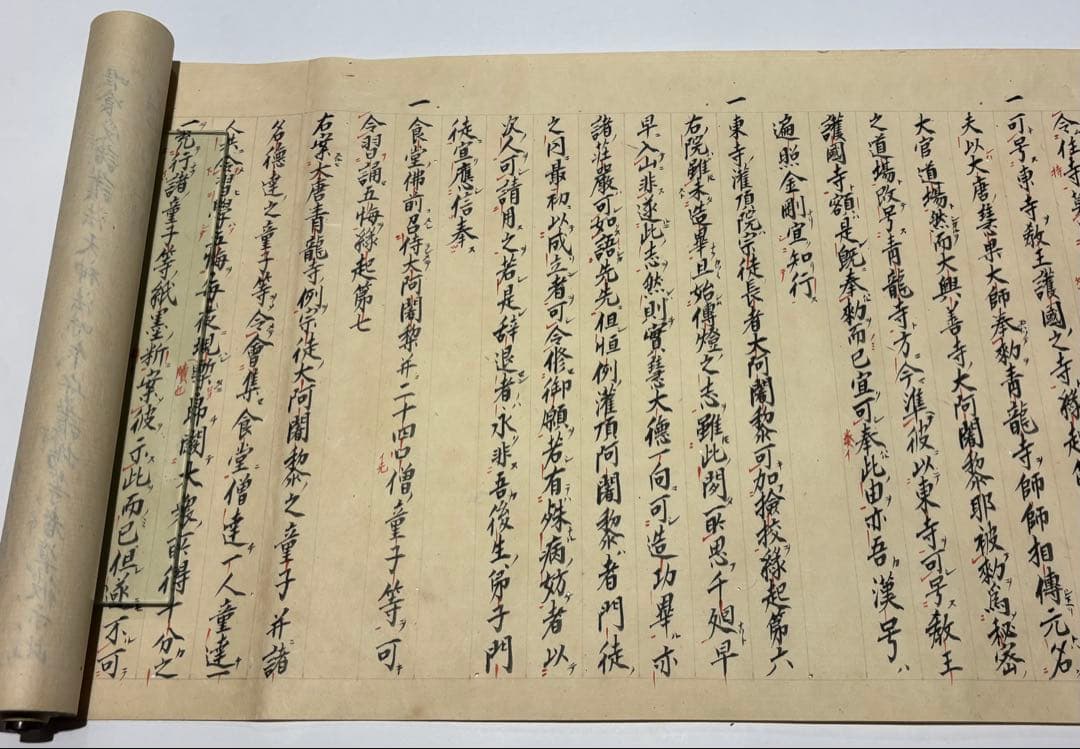 令住寺
一 可号東寺教王護國之寺縁起
夫以大唐慧果大師奉勅青龍寺師師相傳元名
大官道場然而大興善寺大阿闍黎耶被勅為秘密
之道場改号青龍寺方今准彼以東寺可号教王
護國寺額是既奉勅而已宜可奉此由亦吾漢号
遍照金剛宜知行
一 東寺灌頂院宗徒長者大阿闍黎可加撿挍縁起第六
右院雖未造畢且始傳燈之志雖此閇所思千廻早
早入山非遂此志然則實慧大德一向可造功畢亦
諸莊嚴可如語先先但恒例灌頂阿闍黎者門徒
之内最初以成立者可令修御願若有殊病妨者以
次人可請用之若是辞退者永非吾後生弟子門
徒宜應信奉
一 食堂佛前召侍大阿闍黎并二十四口僧童子等可
令習誦五悔縁起第七
右案大唐青龍寺例宗徒大阿闍黎之童子并諸
名德達之童子等令會集食堂僧達一人童達一
人共令習學五悔每夜現
一 充行諸童子等紙墨断案彼示此而已但 不可
歸闍大衆所得十分之